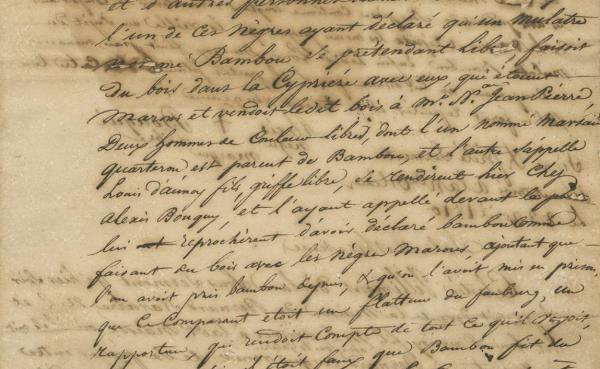 et d'autres personnes
l'un de ces Nègres ayant déclaré qu'un mulatre
nommé Bambou, se prétendant libre faisoit
du bois dans la Cyprière avec eux qui étoient
Marons et vendoit ledit bois à Mr. Nas. Jean Pierre
Deux hommes de Couleur libres, dont l'un nommé
quarteron est parent de Bambou, et l'autre s'appelle
Louis daunoy fils, griffe libre, se rendirent hier chez
alexis Bouguy, et l'ayant appellé devant
lui reprochèrent d'avoir déclaré bambou comme
faisant du bois avec les nègre Marons, ajoutant que
l'on avoit pris Bambou depuis, & qu'on l'avoit mis en prison,
que ce Comparant étoit un flatteur du faubourg, un
rapporteur qui rendoit Compte de tout ce qu'il voyoit,
étoit faux que Bambou fit du